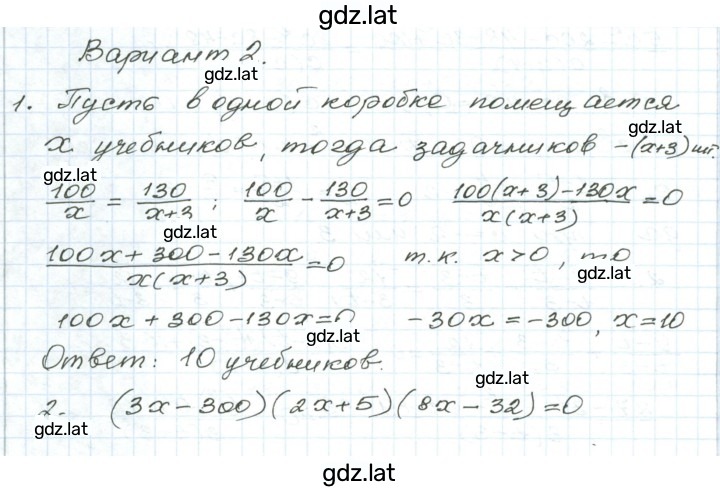 gdz.lat
Вариант 2.
gdz.lat
1. Пусть в одной коробке помещается
gdz.lat
x учебников, тогда задачников - (x+3) шт.
gdz.lat
100/x = 130/(x+3) ; 100/x - 130/(x+3) = 0 (100(x+3)-130x)/(x(x+3)) = 0
gdz.lat
(100x + 300 - 130x)/(x(x+3)) = 0 т.к. x > 0, то
gdz.lat
100x + 300 - 130x = 0 -30x = -300, x = 10
Ответ: 10 учебников.
gdz.lat
2. (3x - 300)(2x + 5)(8x - 32) = 0
gdz.lat
gdz.lat